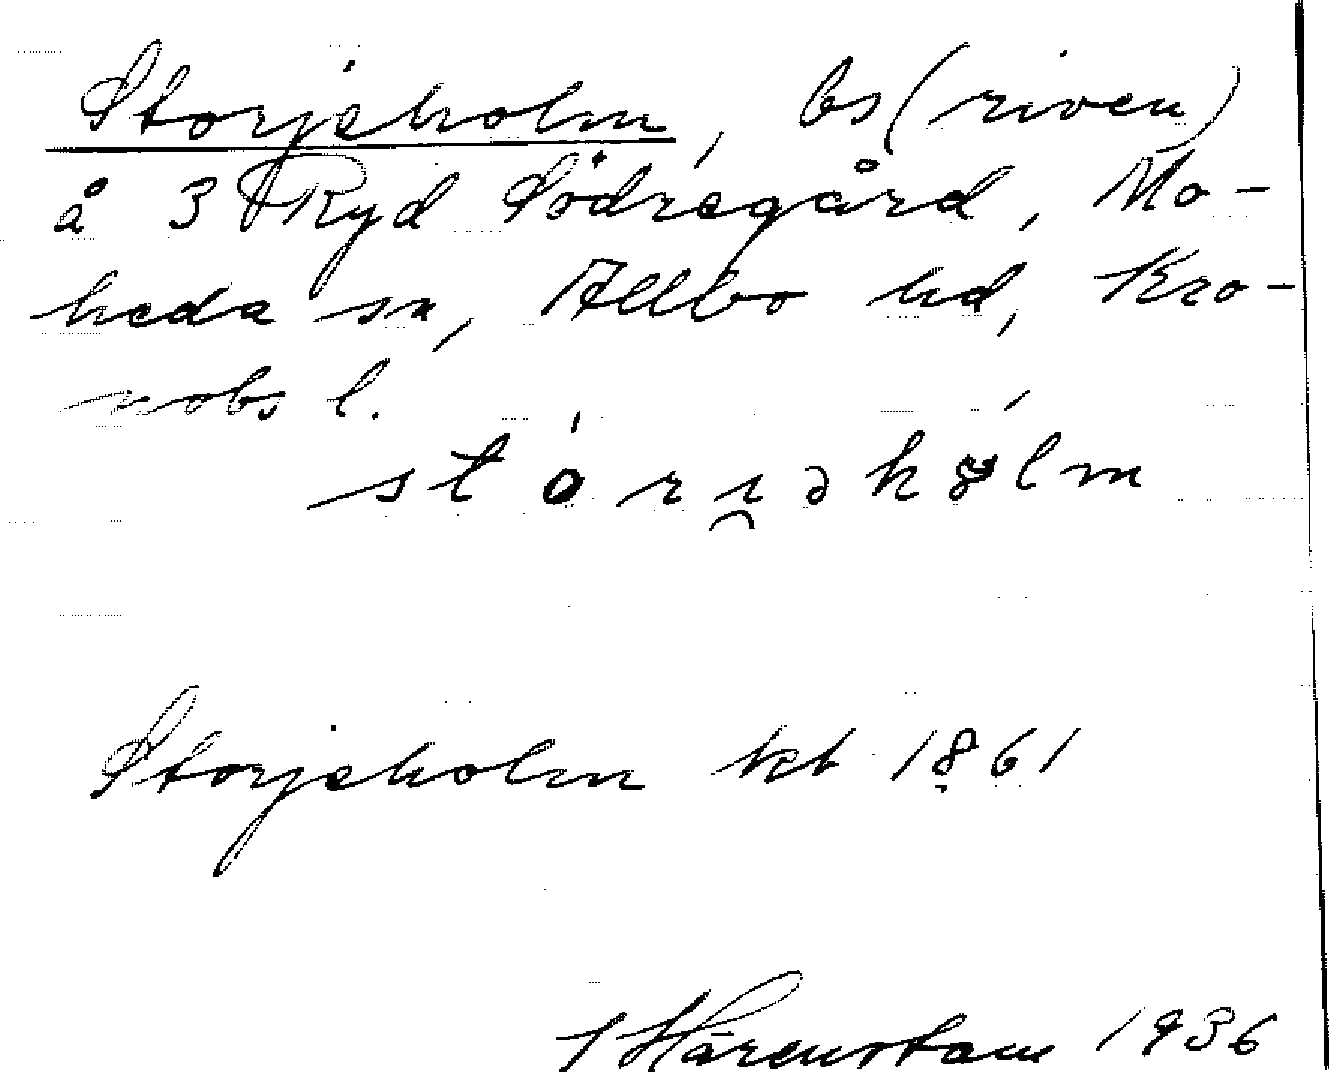 Storjeholm, bs (riven)
å 3 Ryd Södregård, Mo-
heda sn, Allbo hd, Kro-
nobs l.
Storjeholm kt 1861
Härenstam 1936